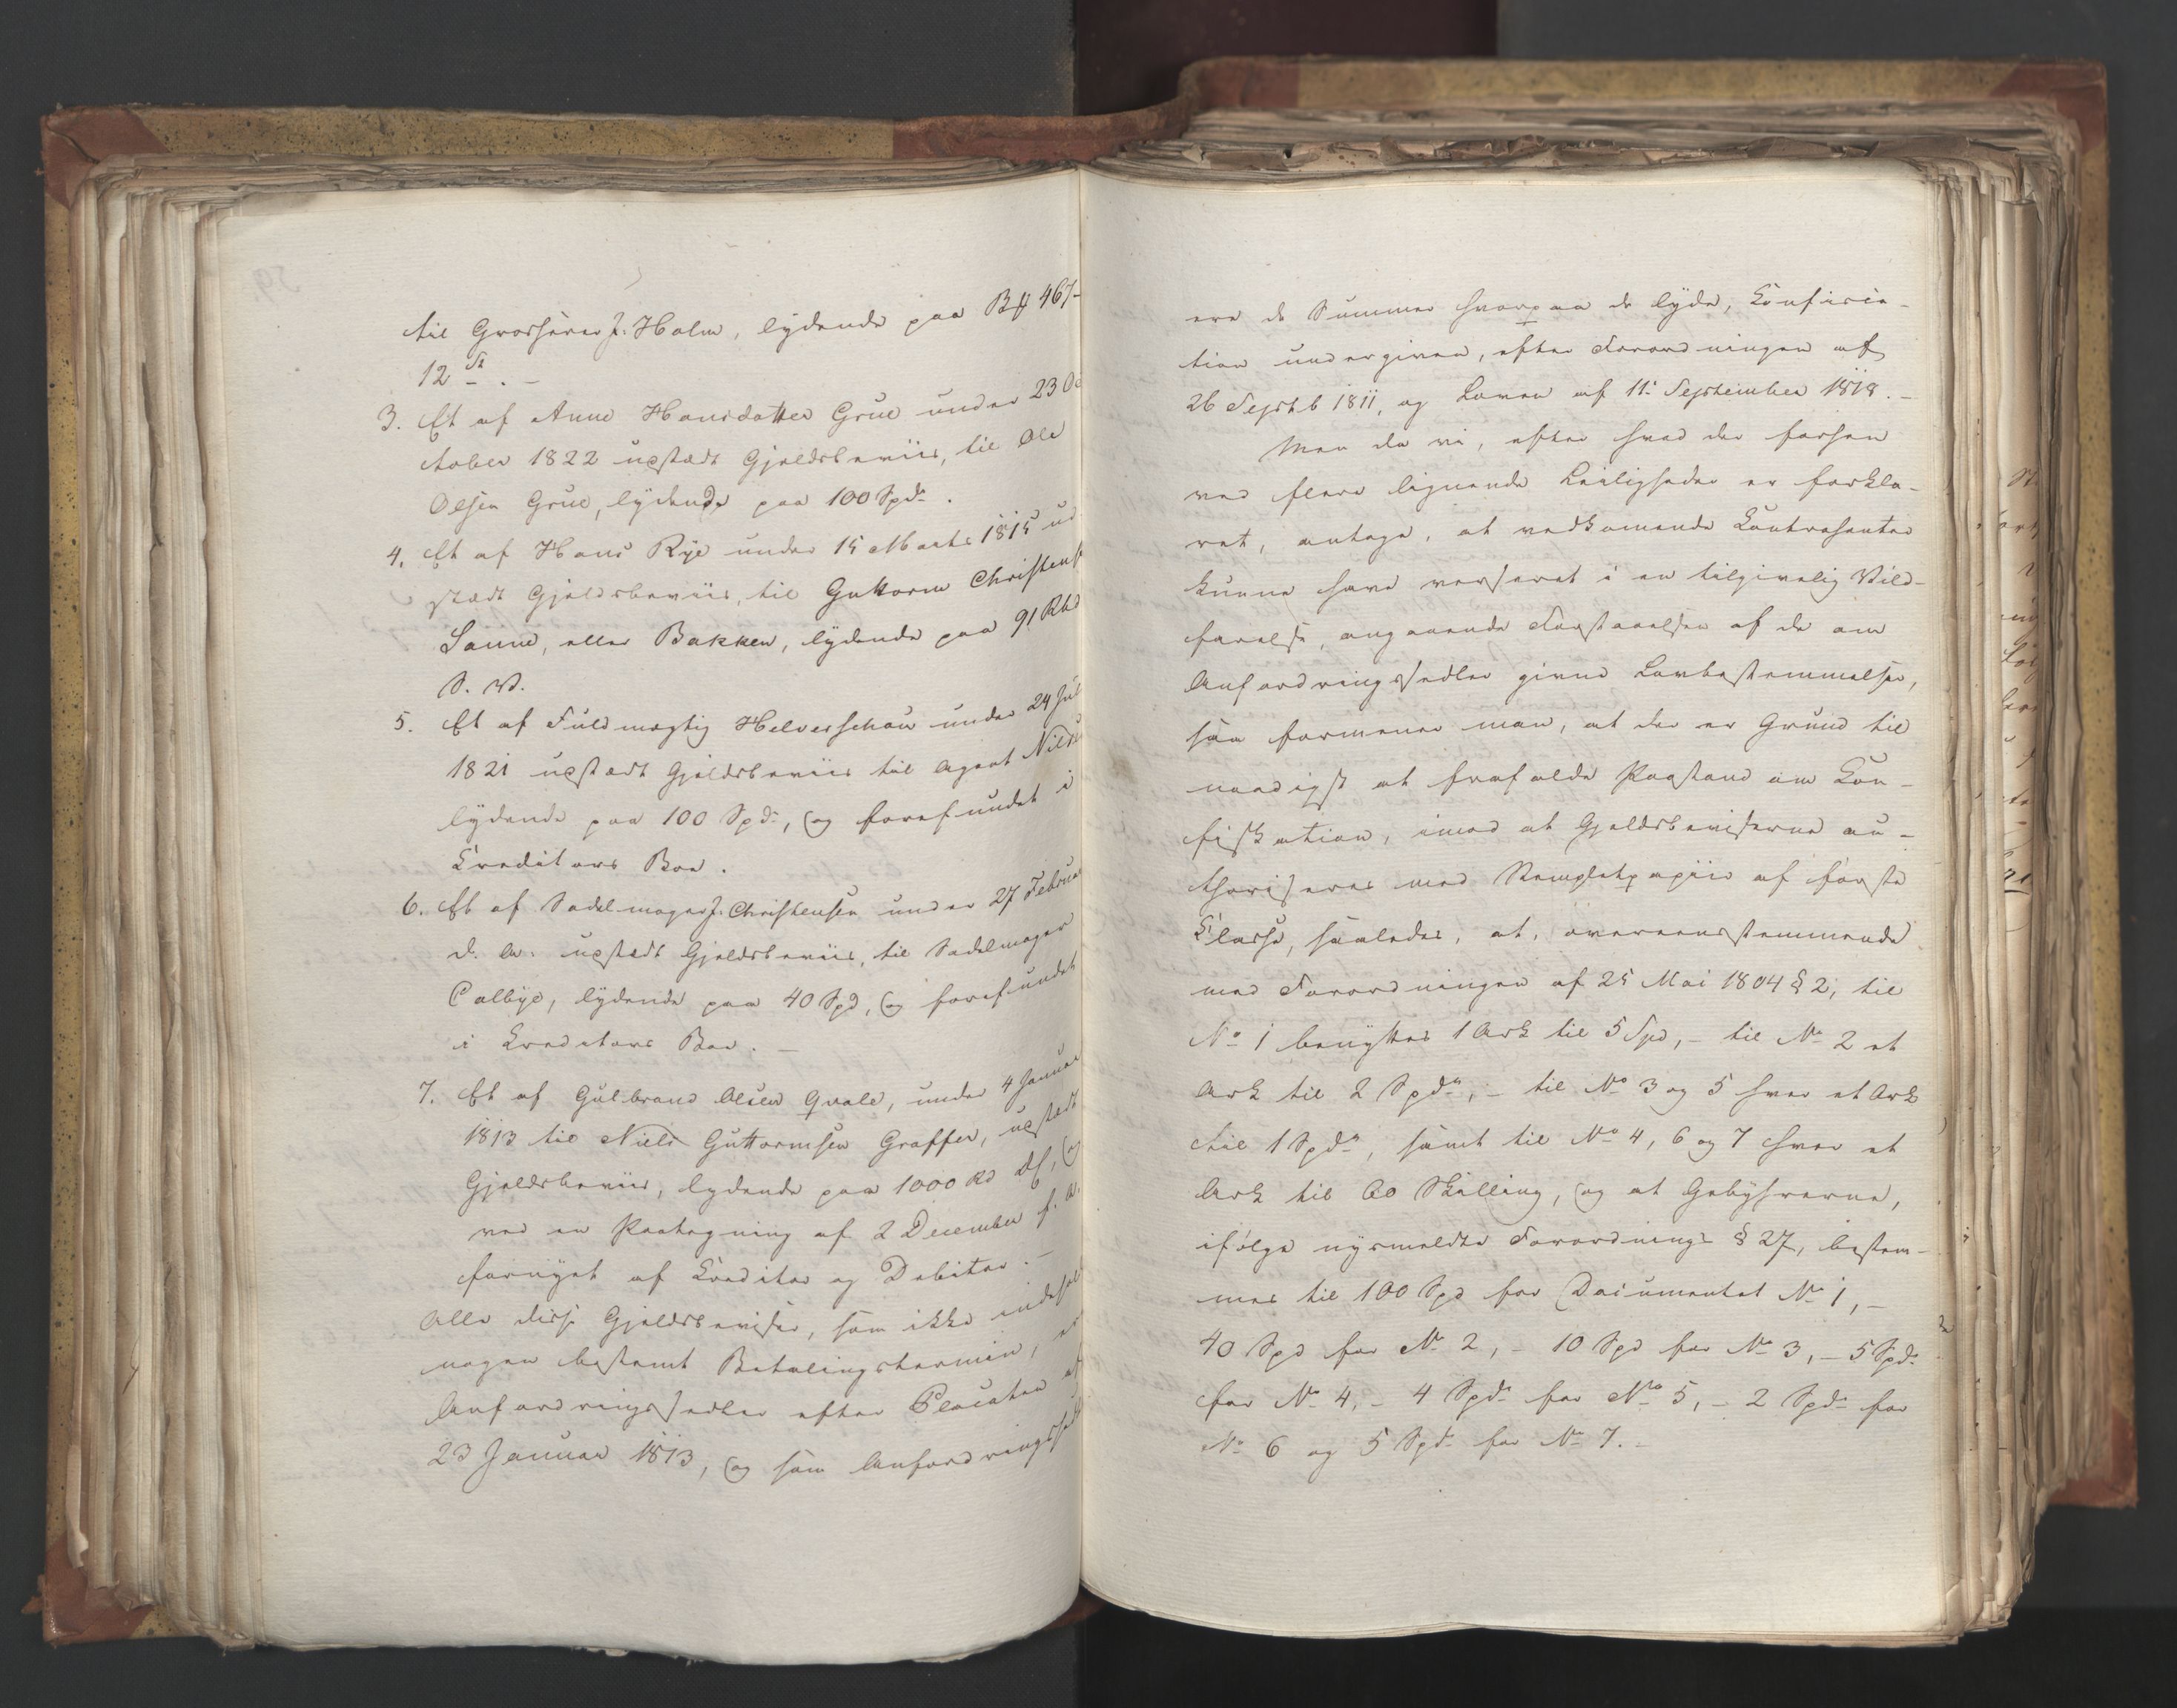 til Grosserer J. Holm, lydende paa B# 467-
12 s. -
3. Et af Anne Hansdatter Grue under 23 Oc
tober 1822 udstædt Gjeldsbeviis, til Ole
Olsen Grue, lydende paa 100 Spd.
4. Et af Hans Rye under 15 Marts 1815 ud
stædt Gjeldsbeviis, til Guttorm Christens
Sønne, eller Bakken, lydende paa 91 Rbd
S. V.
5. Et af Fuldmægtig Helverschou under 24 Jul
1821 udstædt Gjeldsbeviis til Agent Nilse
lydende paa 100 Spd, og forefundet i
Creditors Boe.
6. Et af Sadelmager J. Christensen under 27 Februar
d. A. udstædt Gjeldsbeviis, til Sadelmager
Colbye, lydende paa 40 Spd, og forefundet
i Creditors Boe. -
7. Et af Gulbrand Olsen Qvale, under 4 Januar
1813 til Niels Guttormsen Graffer, udstædt
Gjeldsbeviis, lydende paa 1000 Rd DC, og
ved en Paategning af 2 December f. A.
fornyet af Creditor og Debitor. -
Alle disse Gjeldsbeviser, som ikke indehol
nogen bestemt Betalingstermin, er
Anfordringssedler efter Placaten af
23 Januar 1813, og som Anfordringssed
ere de Summer hvorpaa de lyde, Confisca-
tion undergiven, efter Forordningen af
26 Septb 1811, og Loven af 11. September 1818. -
Men da vi, efter hvad der forhen
ved flere lignende Leiligheder er forkla-
ret, antage, at vedkomende Contrahenter
kunne have verseret i en tilgivelig Vild-
farelse, angaaende Forstaaelsen af de om
Anfordringssedler givne Lovbestemmelser,
saa formener man, at der er Grund til
naadigst at frafalde Paastand om Con-
fiskation, imod at Gjeldsbeviserne au-
thoriseres med Stemplet papiir af første
Classe, saaledes, at, overeensstemmende
med Forordningen af 25 Mai 1804 § 2, til
No 1 benyttes 1 Ark til 5 Spd, - til No 2 et
Ark til 2 Spd, - til No 3 og 5 hver et Ark
til 1 Spd, samt til No 4, 6 og 7 hver et
Ark til 60 Skilling, og at Gebyhrerne,
ifølge nysmeldte Forordnings § 27, bestem-
mes til 100 Spd for Documentet No 1, -
40 Spd for No 2, - 10 Spd for No 3, - 5 Spd
for No 4, - 4 Spd for No 5, - 2 Spd for
No 6 og 5 Spd for No 7. -